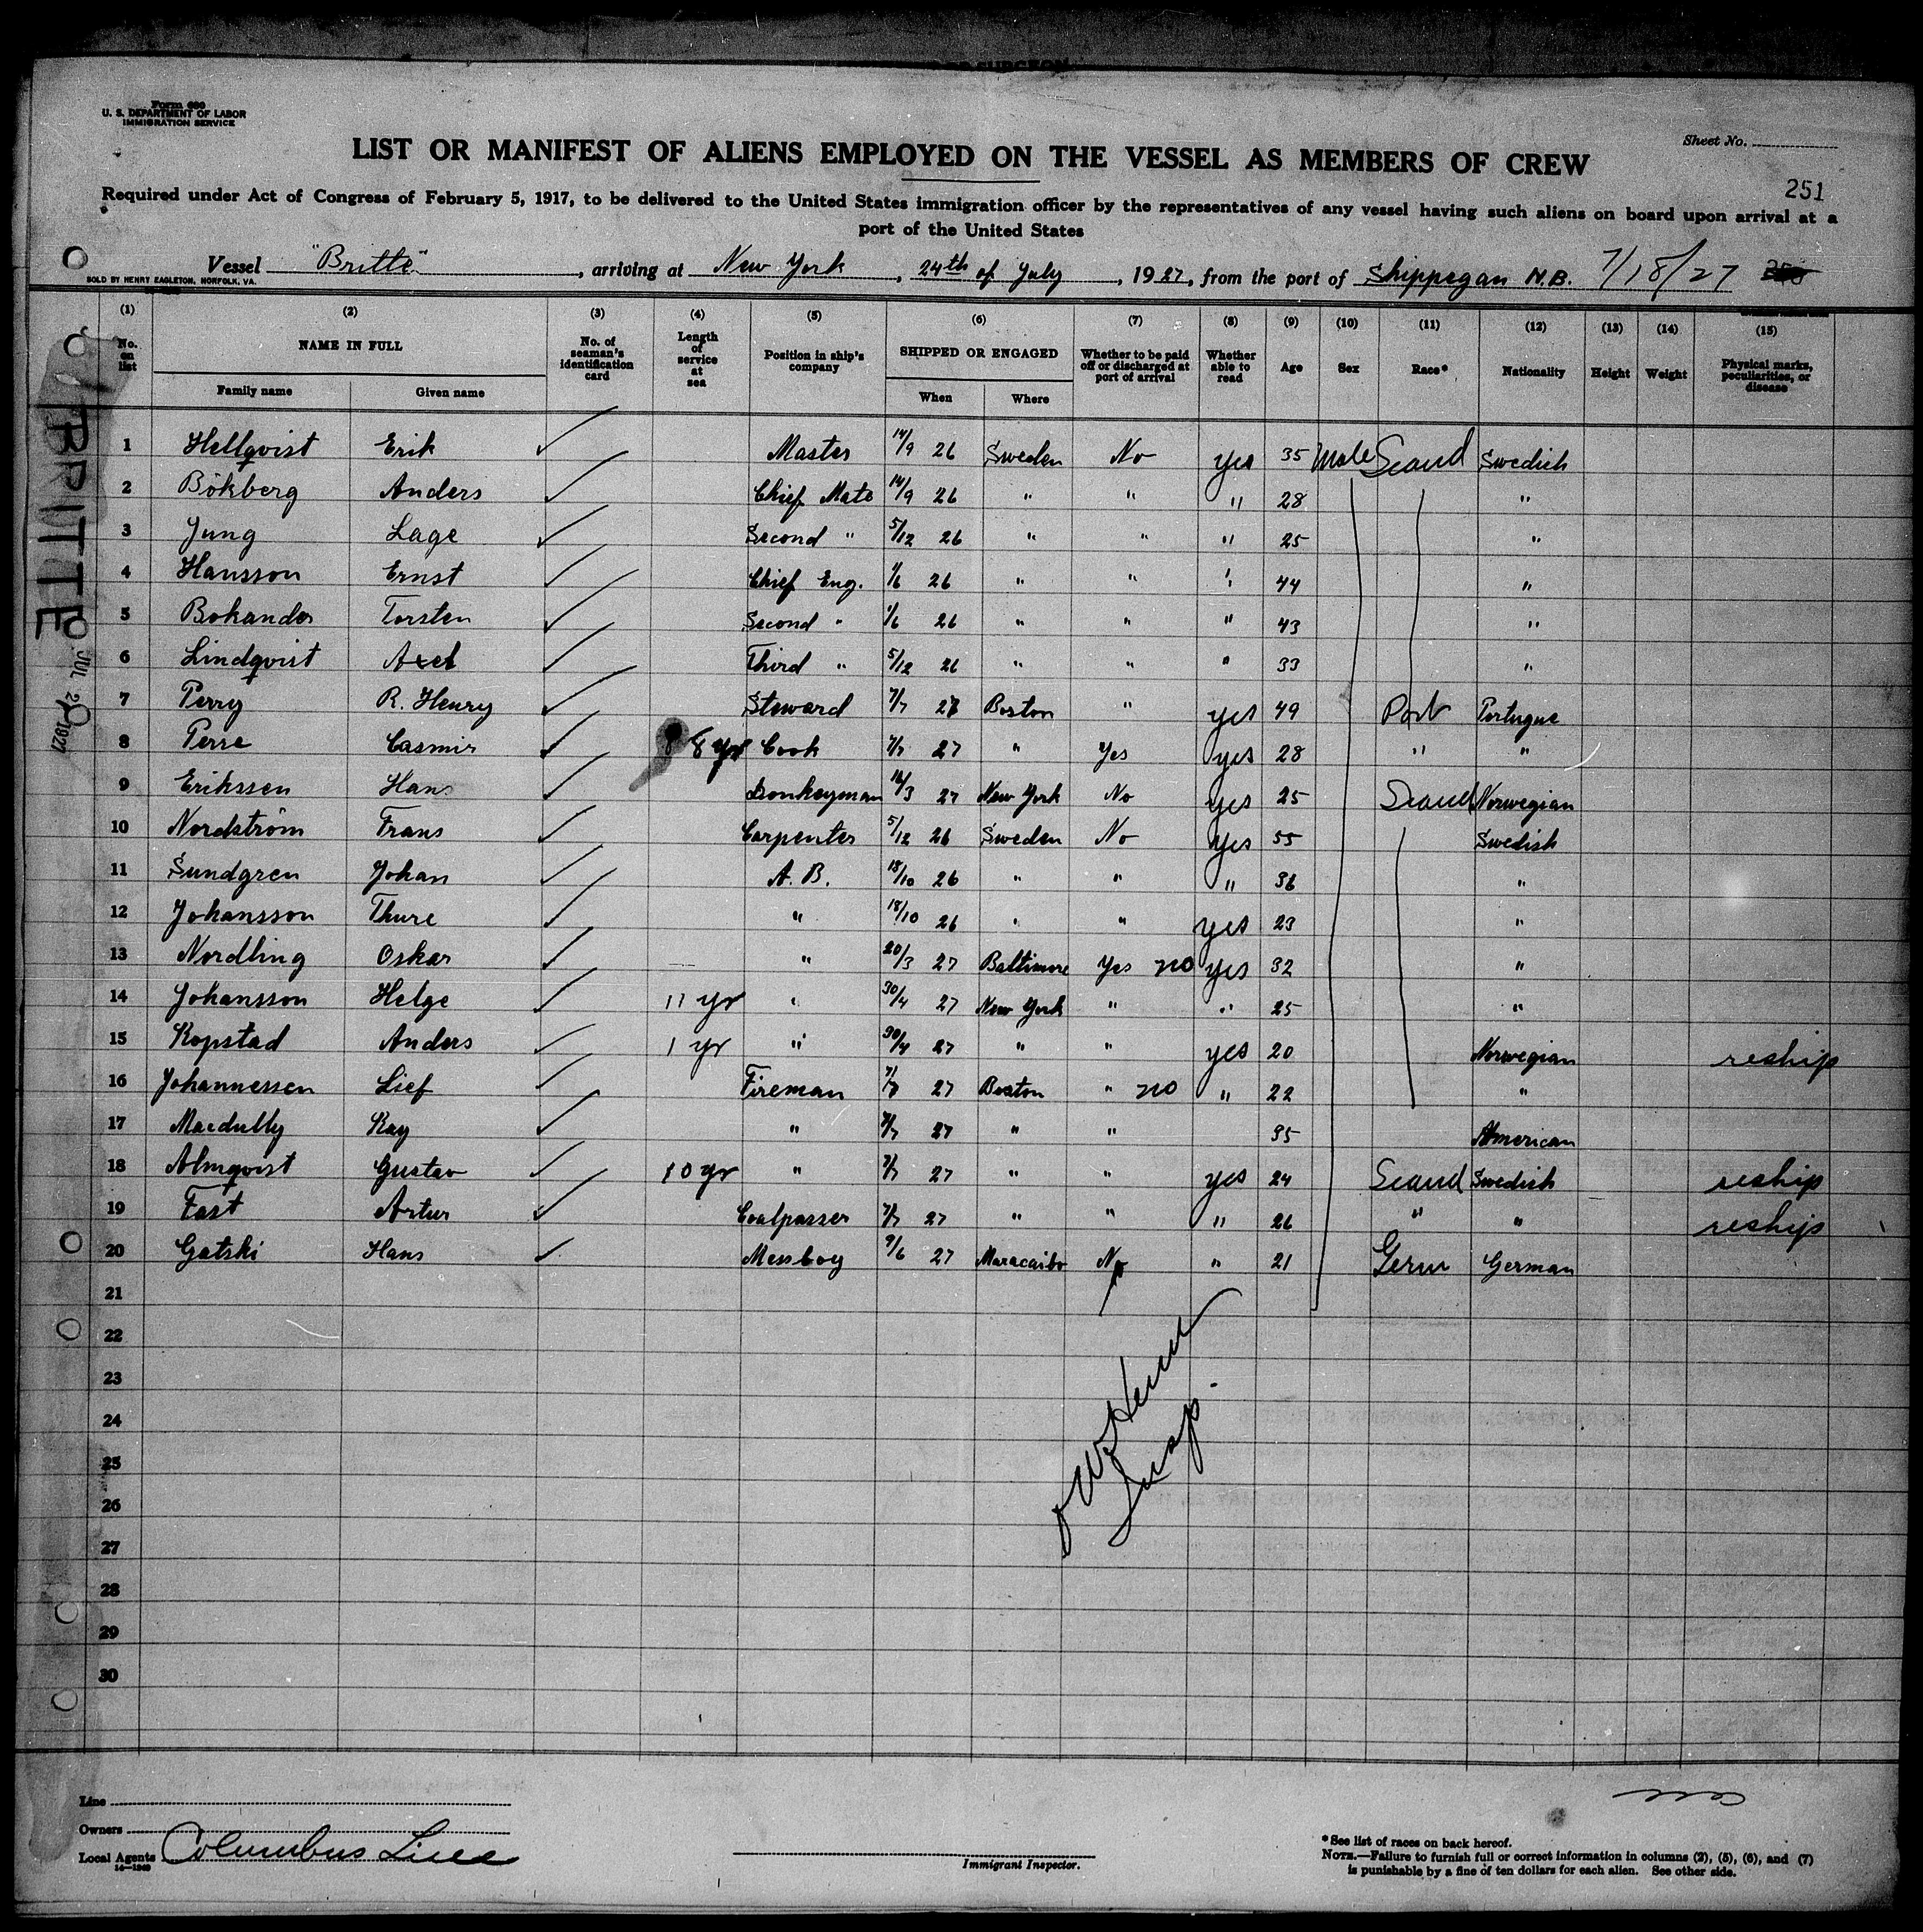 Form 680
U. S. DEPARTMENT OF LABOR
IMMIGRATION SERVICE
Sheet No.
LIST OR MANIFEST OF ALIENS EMPLOYED ON THE VESSEL AS MEMBERS OF CREW
251
Required under Act of Congress of February 5, 1917, to be delivered to the United States immigration officer by the representatives of any vessel having such aliens on board upon arrival at a
port of the United States
Vessel "Britte", arriving at New York, 24th of July, 1927, from the port of Shippegan N.B. 7/18/27
SOLD BY HENRY EAGLETON, NORFOLK, VA.
(1) (2) (3) (4) (5) (6) (7) (8) (9) (10) (11) (12) (13) (14) (15)
No. on list NAME IN FULL No. of seaman's identification card Length of service at sea Position in ship's company SHIPPED OR ENGAGED Whether to be paid off or discharged at port of arrival Whether able to read Age Sex Race* Nationality Height Weight Physical marks, peculiarities, or disease
Family name Given name When Where
1 Hellqvist Erik Master 14/9 26 Sweden No yes 35 Male Scand Swedish
2 Bökberg Anders Chief Mate 14/9 26 " " " 28 "
3 Jung Lage Second " 5/12 26 " " " 25 "
4 Hansson Ernst Chief Eng. 1/6 26 " " " 44 "
5 Bokander Torsten Second " 1/6 26 " " " 43 "
6 Lindqvist Axel Third " 5/12 26 " " " 33 "
7 Perry R. Henry Steward 7/7 27 Boston " yes 49 Port Portugue
8 Perre Casmir 8 yr Cook 7/7 27 " Yes yes 28 " "
9 Erikssen Hans Donkeyman 16/3 27 New York No yes 25 Scand Norwegian
10 Nordström Frans Carpenter 5/12 26 Sweden No yes 55 Swedish
11 Sundgren Johan A. B. 18/10 26 " " " 36 "
12 Johansson Thure " 18/10 26 " " yes 23 "
13 Nordling Oskar " 20/3 27 Baltimore Yes no yes 32 "
14 Johansson Helge 11 yr " 30/4 27 New York " " 25 "
15 Kopstad Anders 1 yr " 30/4 27 " " yes 20 Norwegian reship
16 Johannessen Lief Fireman 7/7 27 Boston " no " 22 "
17 Macdully Ray " 7/7 27 " " 35 American
18 Almqvist Gustav 10 yr " 7/7 27 " " yes 24 Scand Swedish reship
19 Fast Artur Coalpasser 7/7 27 " " " 26 " " reship
20 Gatski Hans Messboy 9/6 27 Maracaibo No " 21 Germ German
21
22
23
24
25
26
27
28
29
30
Insp.
BRITTE
JUL 1927
Line
Owners
Local Agents Columbus Line
14—1249
Immigrant Inspector.
*See list of races on back hereof.
NOTE.—Failure to furnish full or correct information in columns (2), (5), (6), and (7)
is punishable by a fine of ten dollars for each alien. See other side.